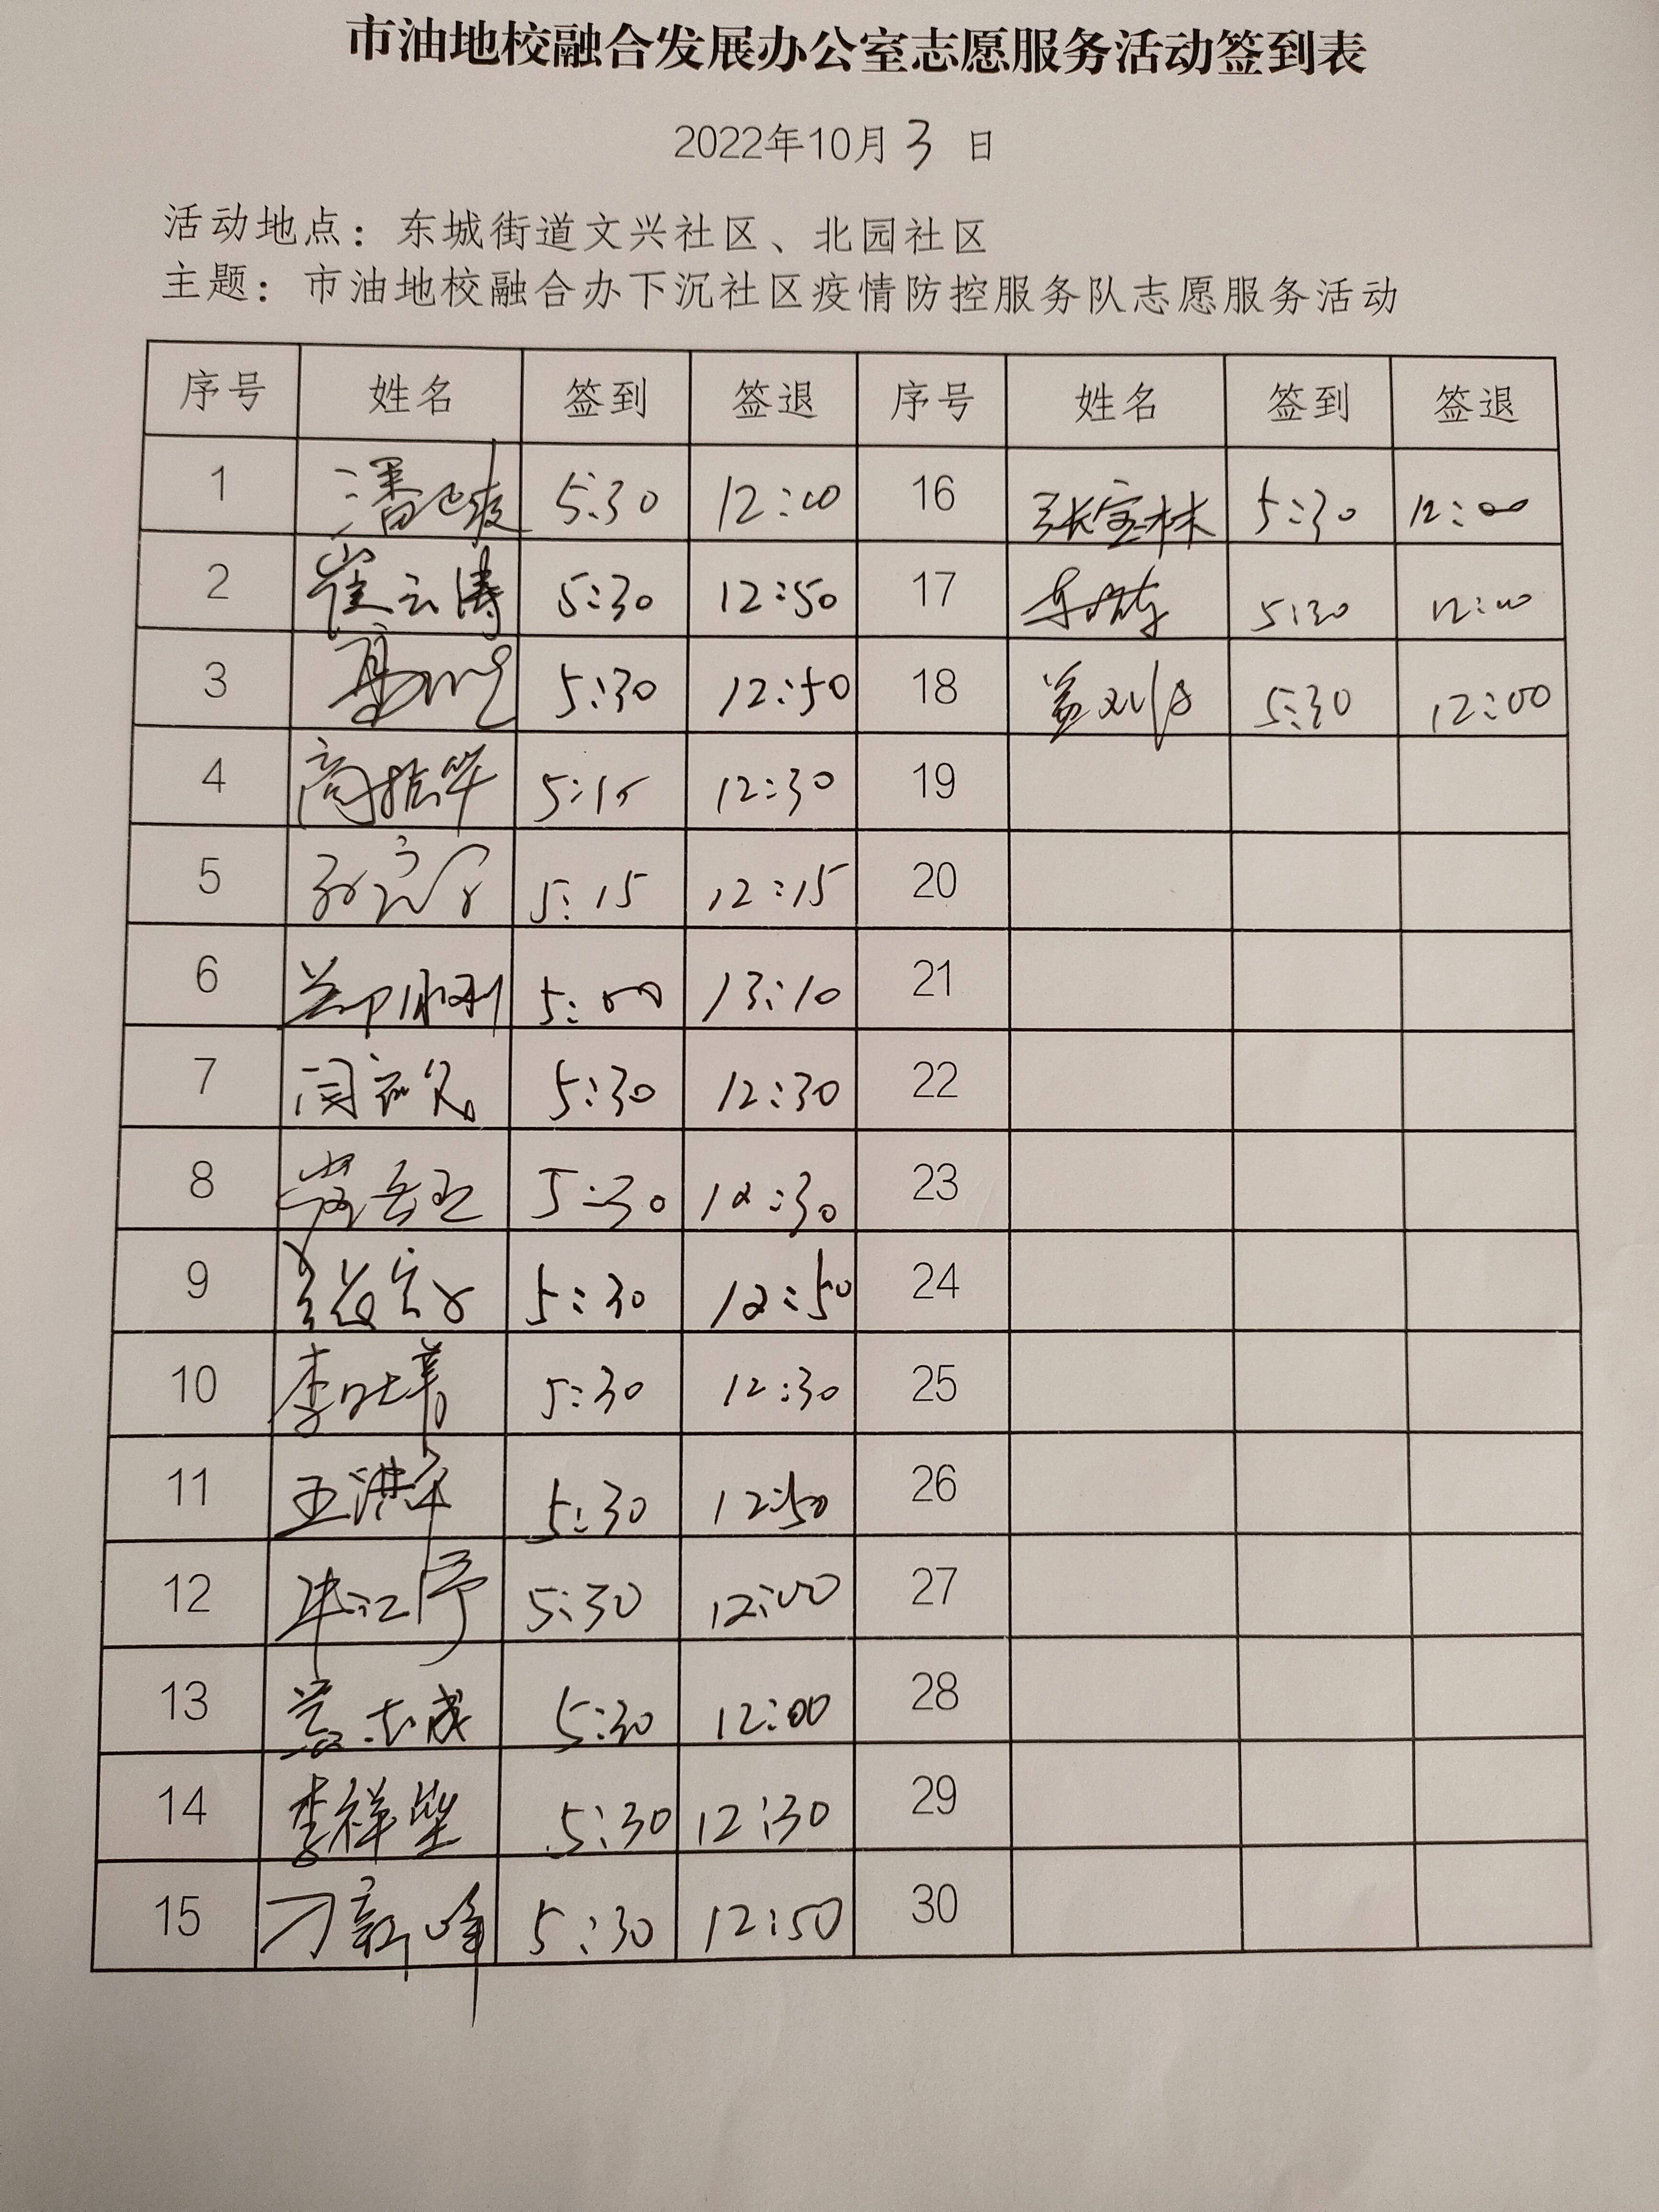 市油地校融合发展办公室志愿服务活动签到表
2022年10月3日
活动地点：东城街道文兴社区、北园社区
主题：市油地校融合办下沉社区疫情防控服务队志愿服务活动
序号 姓名 签到 签退 序号 姓名 签到 签退
1 5:30 12:00 16 张宝林 5:30 12:00
2 崔云涛 5:30 12:50 17 5:30 12:00
3 5:30 12:50 18 5:30 12:00
4 商振华 5:15 12:30 19
5 5:15 12:15 20
6 5:00 13:10 21
7 5:30 12:30 22
8 5:30 12:30 23
9 5:30 12:50 24
10 5:30 12:30 25
11 王洪军 5:30 12:50 26
12 5:30 12:00 27
13 5:30 12:00 28
14 李祥坚 5:30 12:30 29
15 刁新峰 5:30 12:50 30